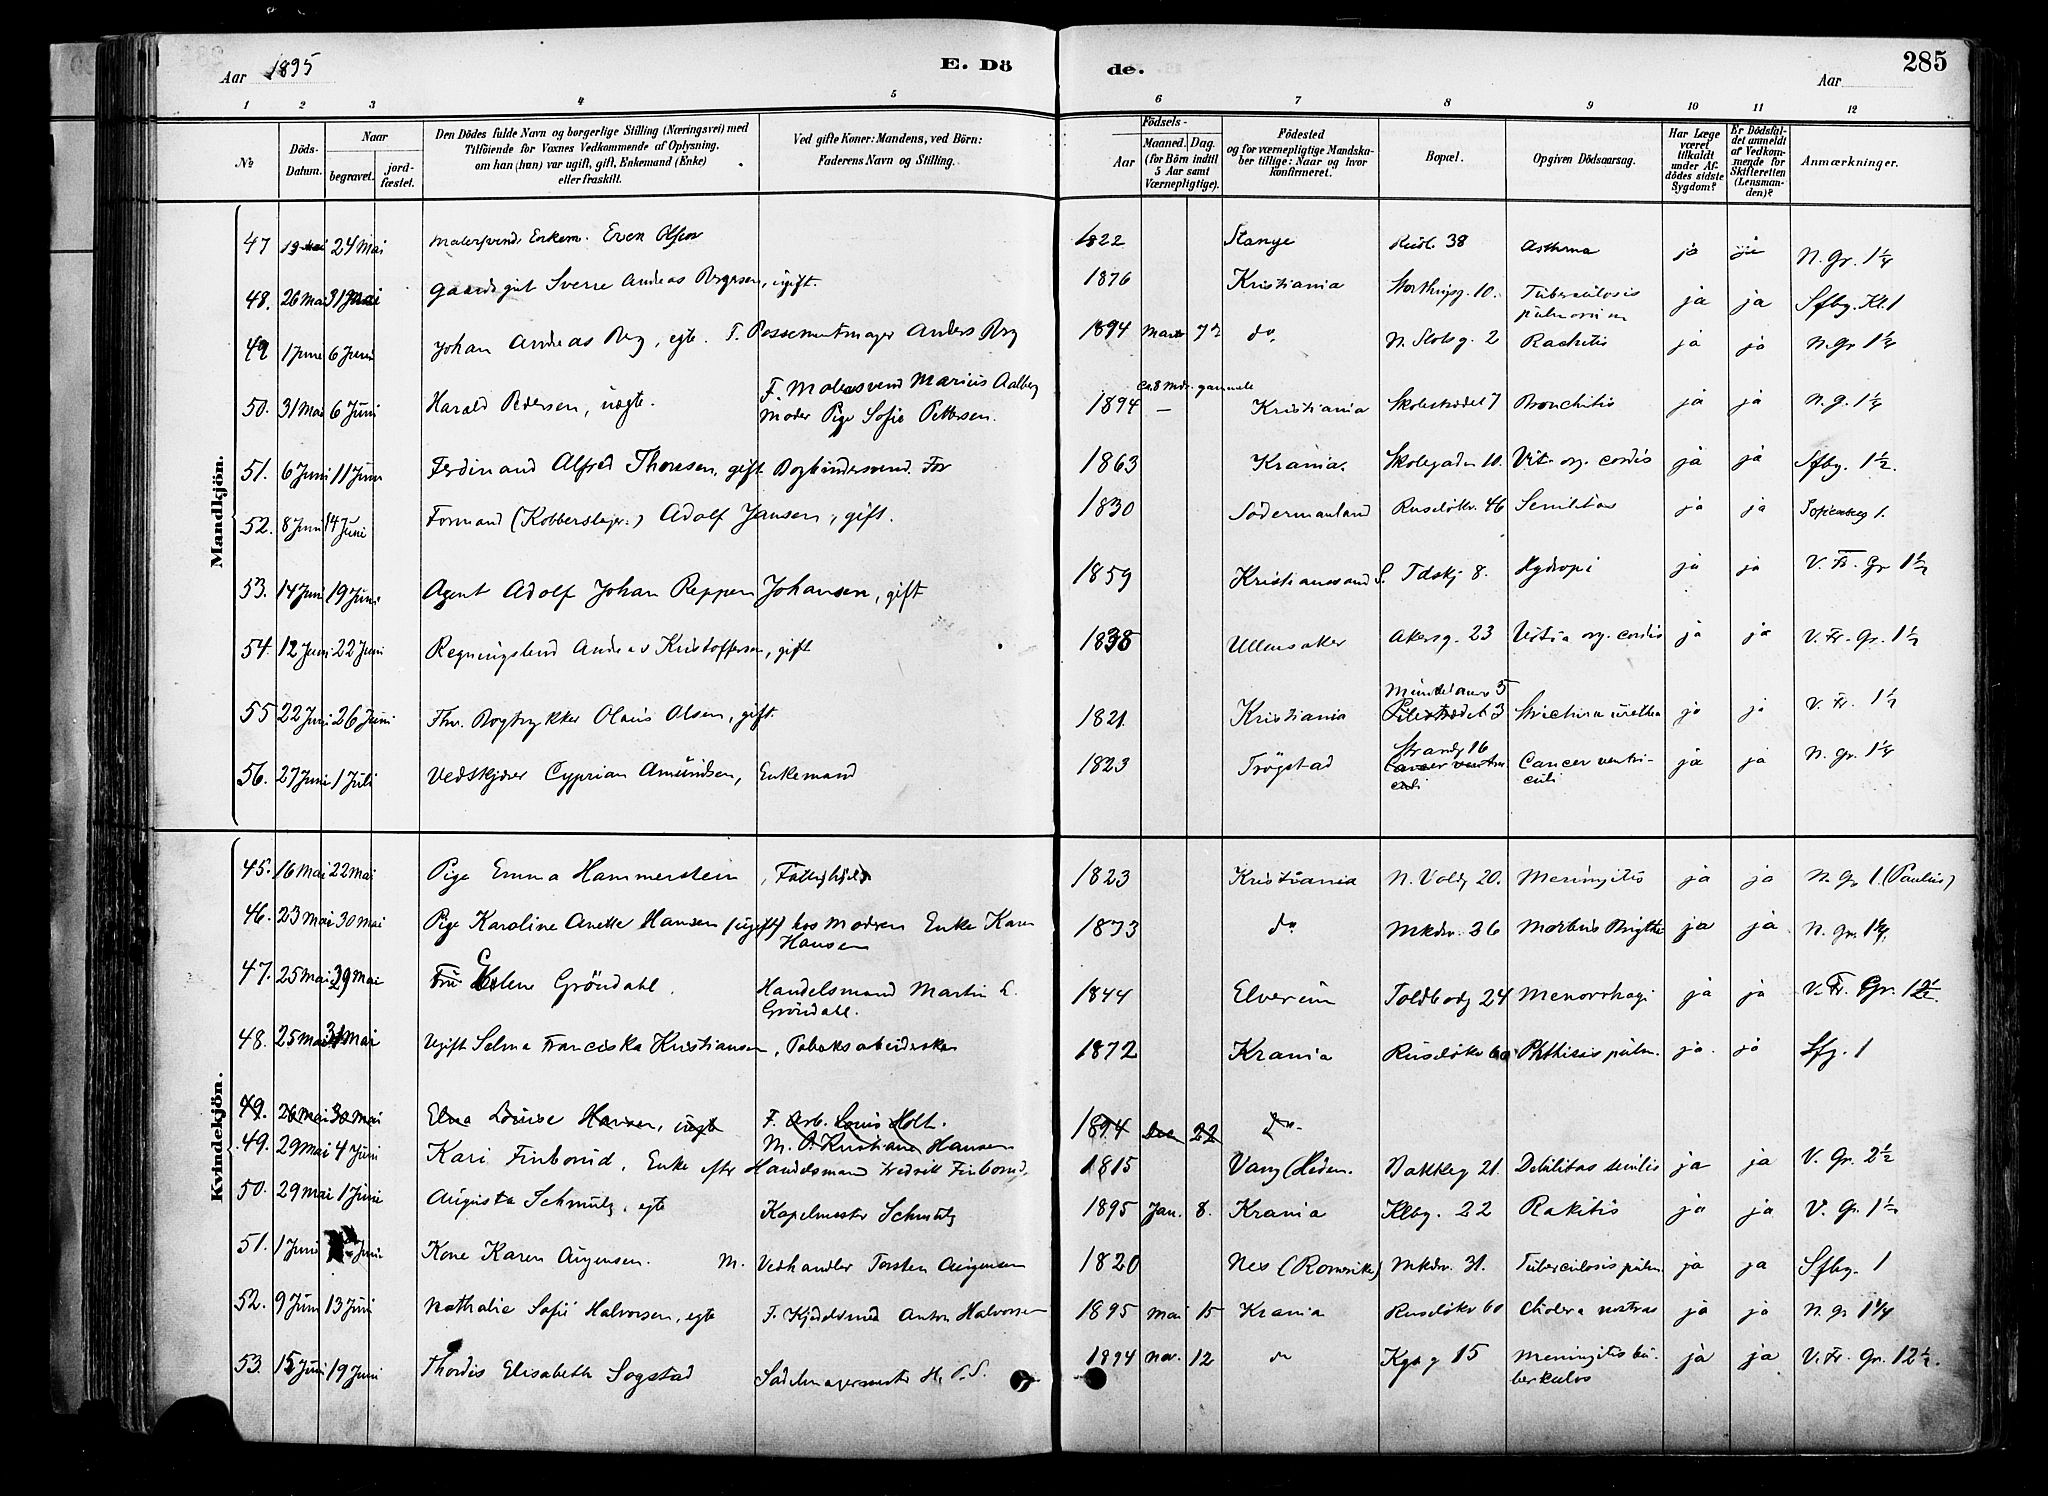 Aar 1895 E. Dö de. Aar 285
1 2 3 4 5 6 7 8 9 10 11 12
No Döds-Datum. Naar begravet. jord-fæstet. Den Dödes fulde Navn og borgerlige Stilling (Næringsvei) med Tilföiende for Voxnes Vedkommende af Oplysning, om han (hun) var ugift, gift, Enkemand (Enke) eller fraskilt. Ved gifte Koner: Mandens, ved Börn: Faderens Navn og Stilling. Födsels- Aar Maaned. Dag. (for Börn indtil 5 Aar samt Værnepligtige). Födested og for værnepligtige Mandskaber tillige: Naar og hvor konfirmeret. Bopæl. Opgiven Dödsaarsag. Har Læge været tilkaldt under Afdödes sidste Sygdom? Er Dödsfaldet anmeldt af Vedkommende for Skifteretten (Lensmanden)? Anmærkninger.
Mandkjön.
47 19 Mai 24 Mai Malersvend Enkem. Even Olsen 1822 Stange Rusl. 38 Asthma ja ja N. Gr. 1 1/4
48. 26 Mai 31 Mai Gaardsgut Sverre Andreas Bergersen, ugift. 1876 Kristiania Storthingsg. 10. Tuberculosis pulmonum ja ja Sfbg. Kl. 1
49 1 Juni 6 Juni Johan Andreas Berg, egte. F. Possementmager Anders Berg 1894 Marts 7 do. N. Slotsg. 2 Rachitis ja ja N. Gr 1 1/4
50. 31 Mai 6 Juni Harald Pedersen, uegte. F. Malersvend Marius Aalberg Moder Pige Sofie Pettersen. 1894 ca. 8 Mdr. gammele — Kristiania Skolestrædet 7 Bronchitis ja ja N. G. 1 1/4
51. 6 Juni 11 Juni Ferdinand Alfred Thoresen, gift Bogbindersvend. For 1863 Krania. Skolegaden 10. Vit. org. cordis ja ja Sfbg. 1 1/2.
52. 8 Juni 14 Juni Formand (Kobberslager.) Adolf Jansen, gift. 1830 Södermanland Ruselökv. 46 Senilitas ja ja Sofienberg 1.
53. 14 Juni 19 Juni Agent Adolf Johan Reppen Johansen, gift 1859 Kristianssand S. Tdskj 8. Hydropi ja ja V. Fr. Gr 1 1/2
54. 12 Juni 22 Juni Regningsbud Andreas Kristoffersen, gift 1838 Ullensaker Akersg. 23 Vitia org. cordis ja ja V. Fr. Gr. 1 1/2
55 22 Juni 26 Juni Fhv. Bogtrykker Olaus Olsen, gift. 1821. Kristiania Pilestrædet 3 Strictura urethra ja ja V. Fr. 1 1/2
56. 27 Juni 1 Juli Vedskjærer Cyprian Amundsen, Enkemand 1823 Trögstad Strandg 16 Cancer ventriculi Cancer ventriculi ja ja N. gr. 1 1/4
Kvindekjön.
45. 16 Mai 22 Mai Pige Emma Hammerstein, Fattighjelp 1823 Kristiania N. Voldg 20. Meningitis ja ja N. Gr 1. (Paulus)
46. 23 Mai 30 Mai Pige Karoline Anette Hansen (ugift) hos Modren Enke Karen Hansen 1873 do Mkdv. 36 Morbus Brigthi ja ja N. Gr. 1 1/4.
47. 25 Mai 29 Mai Fru Elene Gröndahl. Handelsmand Martin E. Gröndahl. 1844 Elverum Toldbodg 24 Menorrhagi ja ja V. Fr. Gr. 1 1/2.
48. 25 Mai 31 Mai Ugift Selma Franciska Kristiansen, Tobaksarbeiderske 1872 Krania Ruselökv 60 Phthisis pulm. ja. ja Sfg. 1
49. 26 Mai 30 Mai Elna Louise Hansen, uegte F. Arb. Louis Holt. M. P. Kristiane Hansen 1894 Dec 22 do.
49. 29 Mai 4 Juni Kari Finborud, Enke efter Handelsmand Fredrik Finborud. 1815 Vang (Hedem. Bakkeg 21. Debilitas senilis ja ja V. Gr. 2 1/2
50. 29 Mai 1 Juni Augusta Schmutz, egte Kapelmester Schmutz 1895 Jan. 8. Krania Klbg. 22 Rakitis ja ja V. Gr. 1 1/2
51. 1 Juni Juni Kone Karen Aügensen. M. Vedhandler Torsten Aügensen 1820 Nes (Romerike) Mkdv. 31. Tuberculosis pulm. ja ja Sfbg. 1
52. 9 Juni 13 Juni Nathalie Sofie Halvorsen, egte F. Kjeldelsmed Anton Halvorsen 1895 Mai 15 Krania Ruselökv 60 Cholera nostras ja ja N. gr 1 1/4
53. 15 Juni 19 Juni Thordis Elisabeth Sogstad Sadelmagermester H. P. S. 1894 Nov. 12 do Kgs g 15 Meningitis tuberkulos ja ja V. Fr. Gr. 12 1/2.